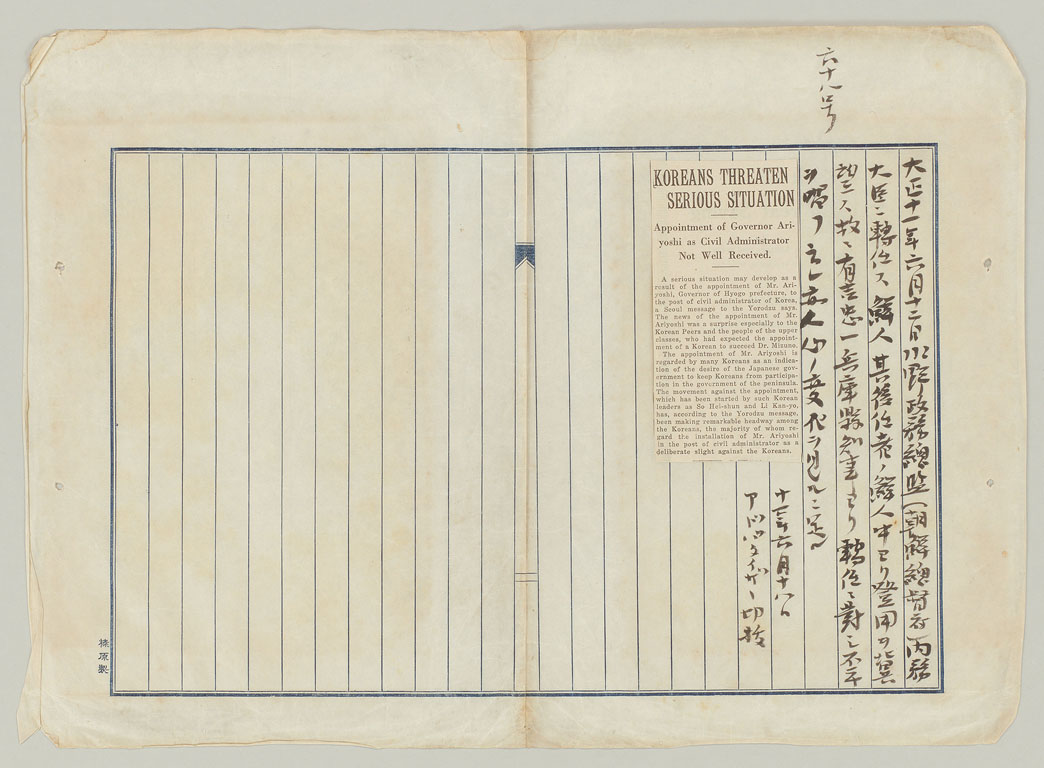 六十八号
大正十一年六月十二日水野政務總監(朝鮮總督府)内務
大臣ニ轉任ス鮮人其後任者ノ鮮人中ヨリ登用ヲ冀
望ス故ニ有吉忠一兵庫縣知事ヨリ轉任ニ對シ不平
ヲ唱フ
人心ノ変化ヲ見ルニ足ル
KOREANS THREATEN
SERIOUS SITUATION
Appointment of Governor Ari-
yoshi as Civil Administrator
Not Well Received.
A serious situation may develop as a
result of the appointment of Mr. Ari-
yoshi, Governor of Hyogo prefecture, to
the post of civil administrator of Korea,
a Seoul message to the Yorodzu says.
The news of the appointment of Mr.
Ariyoshi was a surprise especially to the
Korean Peers and the people of the upper
classes, who had expected the appoint-
ment of a Korean to succeed Dr. Mizuno.
The appointment of Mr. Ariyoshi is
regarded by many Koreans as an indica-
tion of the desire of the Japanese gov-
ernment to keep Koreans from participa-
tion in the government of the peninsula.
The movement against the appointment,
which has been started by such Korean
leaders as So Hei-shun and Li Kan-yo,
has, according to the Yorodzu message,
been making remarkable headway among
the Koreans, the majority of whom re-
gard the installation of Mr. Ariyoshi
in the post of civil administrator as a
deliberate slight against the Koreans.
十一年六月十八日
アドバタイザー切抜
榛原製